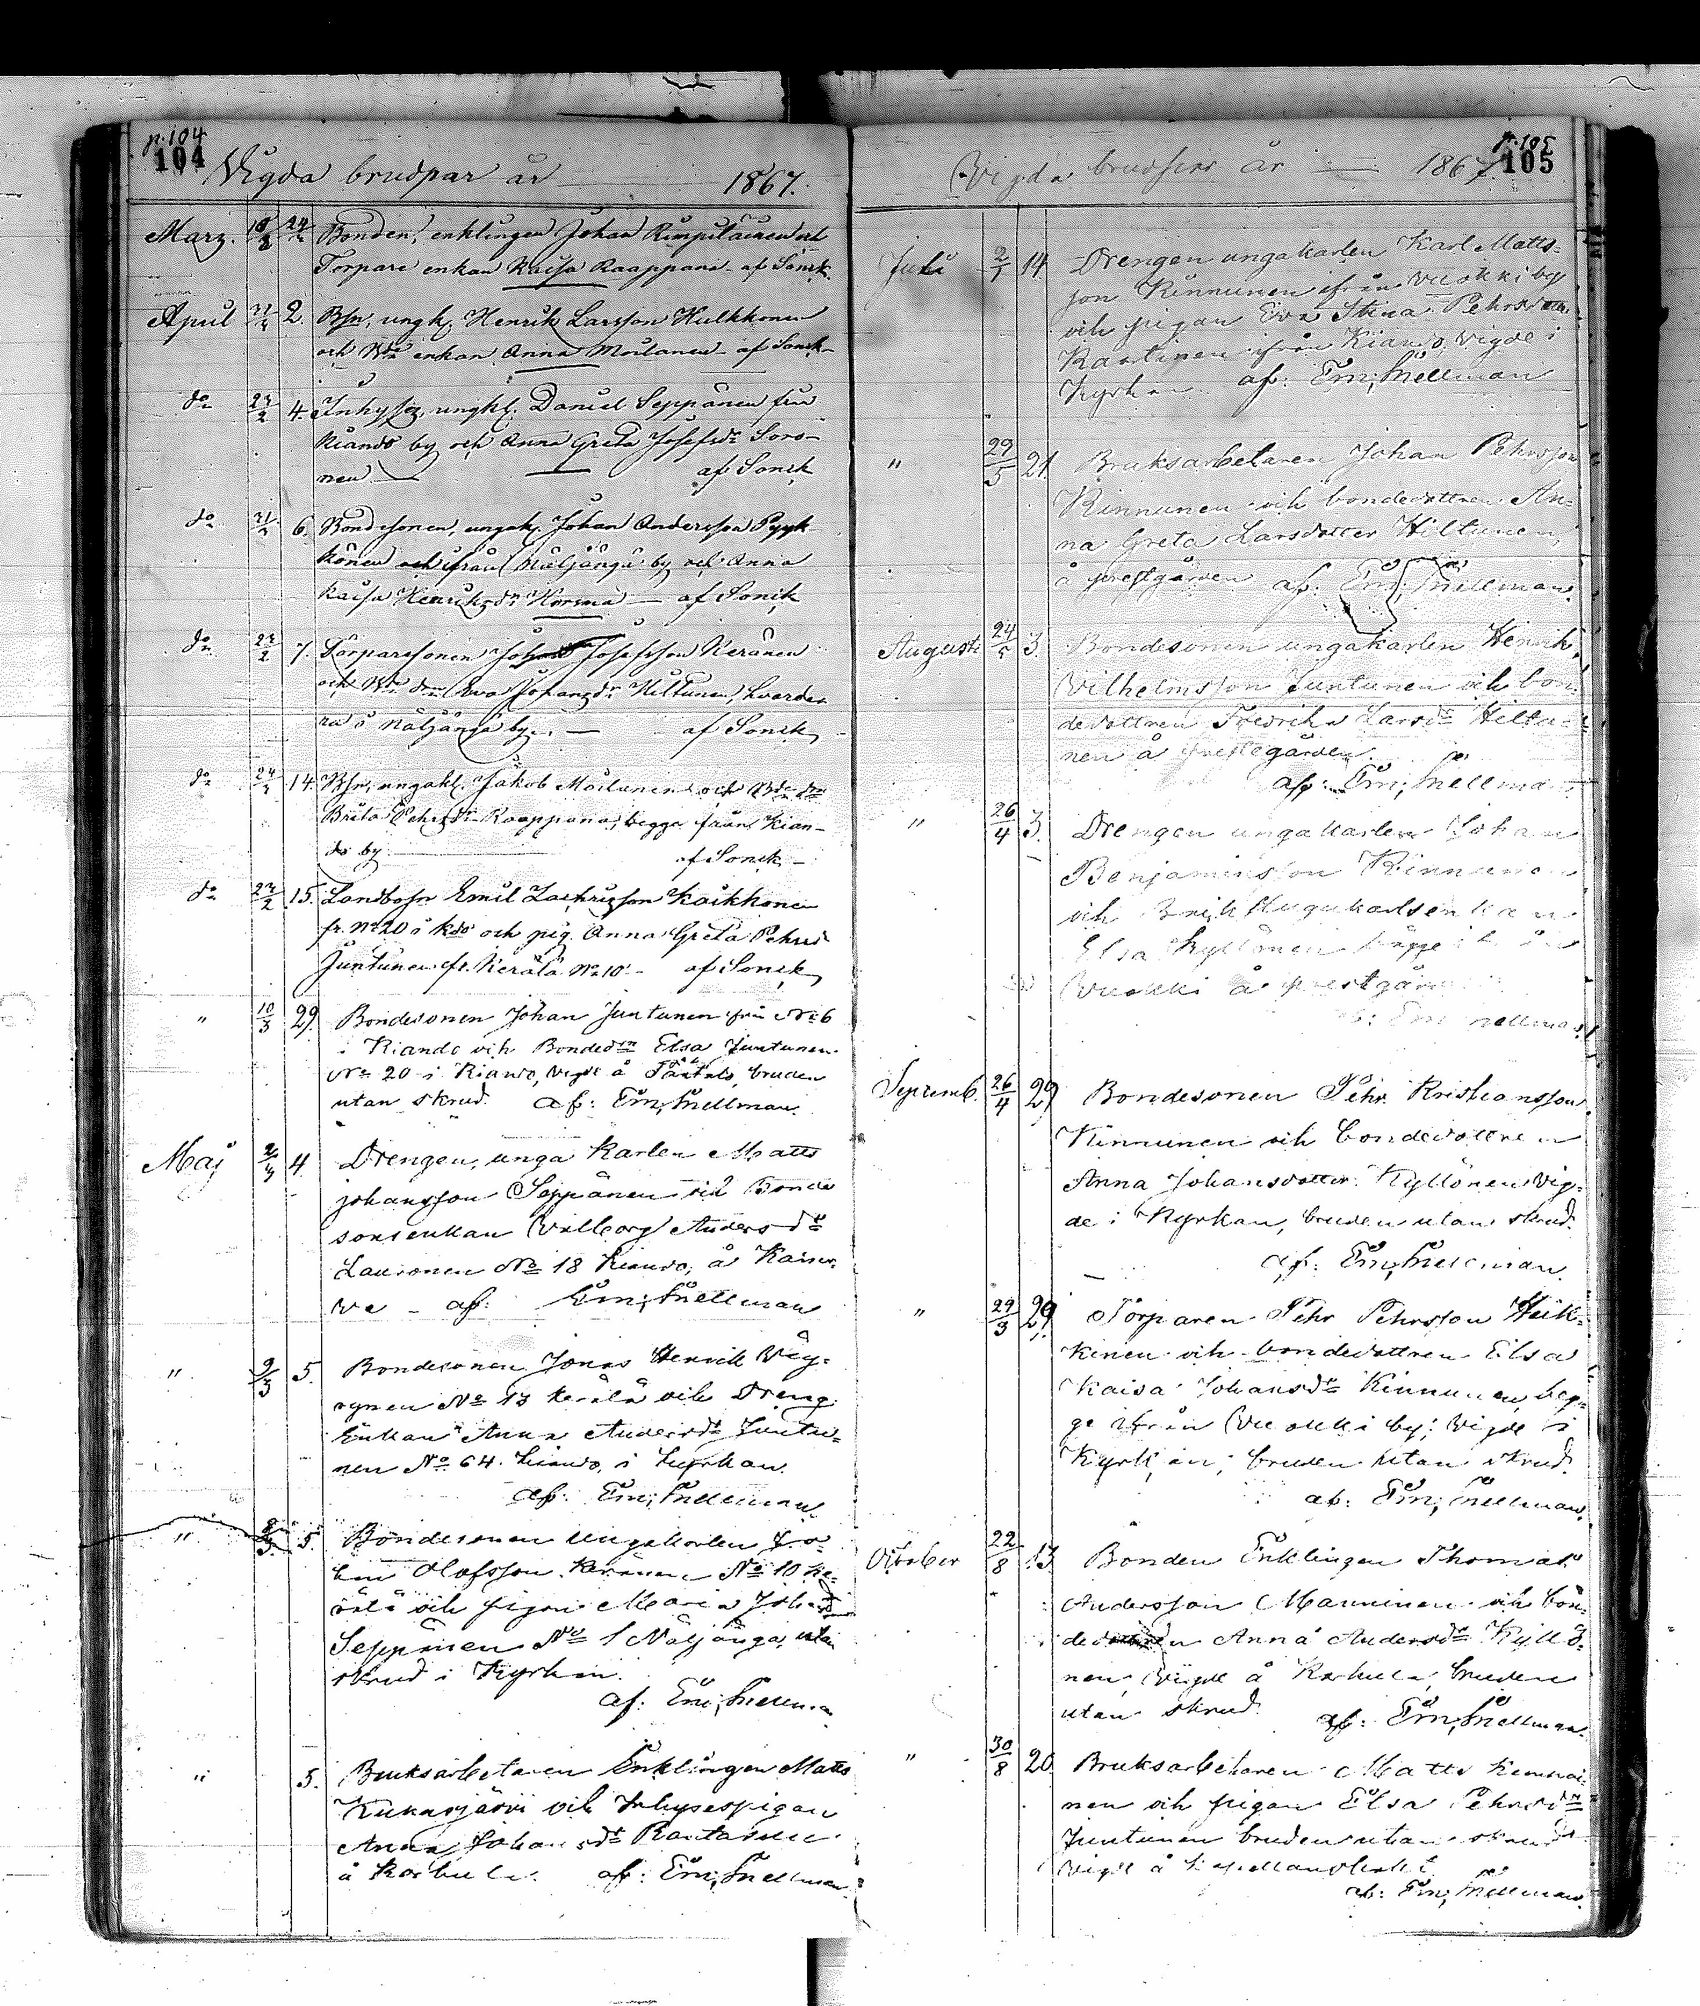 p. 104
104
Vigda brudpar år 1867.
Marz. 18/2 24 Bonden, enklingen Johan Rimpiläinen och
Torpare enkan Kaisa Raappana af Sonck
April 2. Bsn, ungk. Henrik Larsson Hulkkonen
och enkan Anna Moilanen af Sonck
do 4. Inhyss, ungkl. Daniel Seppänen från
Kiando by och Anna Greta Josefsdr Soro-
nen af Sonck
do 6. Bondesonen, ungk. Johan Andersson Pyyk-
könen och ifrån Näljängä by och Anna
Kaisa Henriksdr Horma af Sonck
do 7. Torparesonen Josefsson Keränen
och Eva Johansdr Hiltunen, hvarder
ra i Näljängä by. af Sonck
do 14. Bsn, ungakl. Jakob Moilanen och
Brita Pehrsdr Raappana, begge från Kian-
do by af Sonck
do 15. Landbosn Emil Zachrisson Kaikkonen
fr. No 20 i Kdo och pig. Anna Greta Pehrsd
Juntunen fr. Kerälä No 10 af Sonck
" 10/3 29. Bondesonen Johan Juntunen från No 6
i Kiando och Bonded. Elsa Juntunen
No 20 i Kiando, vigde å bruden
utan skrud. af: Em. Snellman
Maj 4 Drengen, unga karlen Matts
johansson Seppänen och Bonde
sonsenkan Valborg Anders dr
Lauronen No 18 Kiando, å Kaiser-
we af: Em. Snellman
" 9/3 5. Bondesonen Jonas Henrik Väy-
rynen No 13 Kerälä och Dreng
Enkan Anna Andersdr Juntu-
nen No 64 Kiando, i kyrkan.
af: Em. Snellman
" 5. Bondesonen ungakarlen
Olofsson Keränen No 10 Ke-
rälä och pigan Maria Johansd
Seppänen No 1 Näljänga, utan
skrud i Kyrkan.
af: Em. Snellman
" 5. Bruksarbetaren Enklingen Matts
Kukasjärvi och Inhysespigan
Anna Johansdr Rantanen
å Karhula. af: Em. Snellman
p. 105
105
Vigda brudpar år 1867
Juli 2/5 14. Drengen ungakarlen Karl Matts-
son Kinnunen ifrån Vuokki by
och pigan Eva Stina Pehrsdotter
ifrån Kiando, vigde i
Kyrkan. af: Em. Snellman
" 29/5 21. Bruksarbetaren Johan Pehrsson
Kinnunen och bondedottren An-
na Greta Larsdotter Hiltunen,
å prestgården af: Em. Snellman.
Augusti 24/5 3. Bondesonen ungakarlen Henrik
Wilhelmsson Juntunen och bon-
dedottren Fredrika Larsdr Hiltu-
nen å prestegården.
af: Em. Snellman
" 26/4 3. Drengen ungakarlen Johan
Benjaminsson Kinnunen
och
Elsa Kyllönen begge ifrån
Vuokki å prestgården
af: Em. Snellman
Septemb. 26/4 29 Bondesonen Pehr Kristiansson
Kinnunen och bondedottren
Anna Johansdotter Kyllönen vig-
de i Kyrkan, bruden utan skrud.
af: Em. Snellman.
" 29/3 29. Torparen Pehr Pehrsson Heik-
kinen och bondedottren Elsa
Kaisa Johansdr Kinnunen, beg-
ge ifrån Vuokki by; vigde i
Kyrkan; bruden utan skrud.
af: Em. Snellman.
October 22/8 13. Bonden Enklingen Thomas
Andersson Manninen och bon-
dedottren Anna Andersdr Kyllö-
nen, vigde å Karhula, bruden
utan skrud. af: Em. Snellman.
" 30/8 20 Bruksarbetaren Matts Kemai-
nen och pigan Elsa Pehrsdr
Juntunen bruden utan skrud
vigde å
af: Em. Snellman.